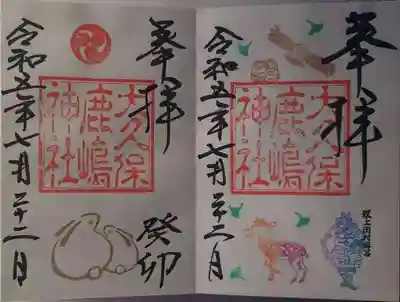 奉拝
大久保
鹿嶋
神社
令和五年七月二十二日
奉拝
癸卯
大久保
鹿嶋
神社
令和五年七月二十二日